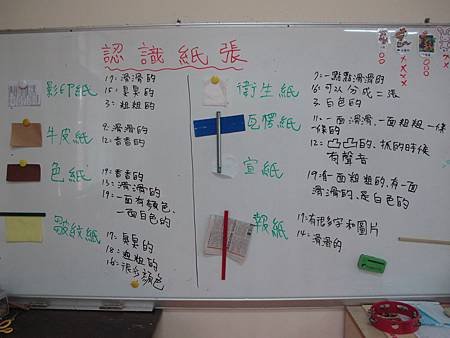 認識紙張
影印紙
19:滑滑的
15:臭臭的
3:粗粗的
牛皮紙
9:滑滑的
12:香香的
色紙
19:香香的
13:滑滑的
19:一面有顏色、
一面白色的
皺紋紙
17:臭臭的
18:粗粗的
16:很多顏色
衛生紙
7:一點點滑滑的
16:可以分成二張
3:白色的
瓦愣紙
11:一面滑滑、一面粗粗一條一
條的
12:凸凸的、抓的時候
有聲音
宣紙
19:有一面粗粗的、有一面
滑滑的、是白色的
報紙
17:有很多字和圖片
14:滑滑的